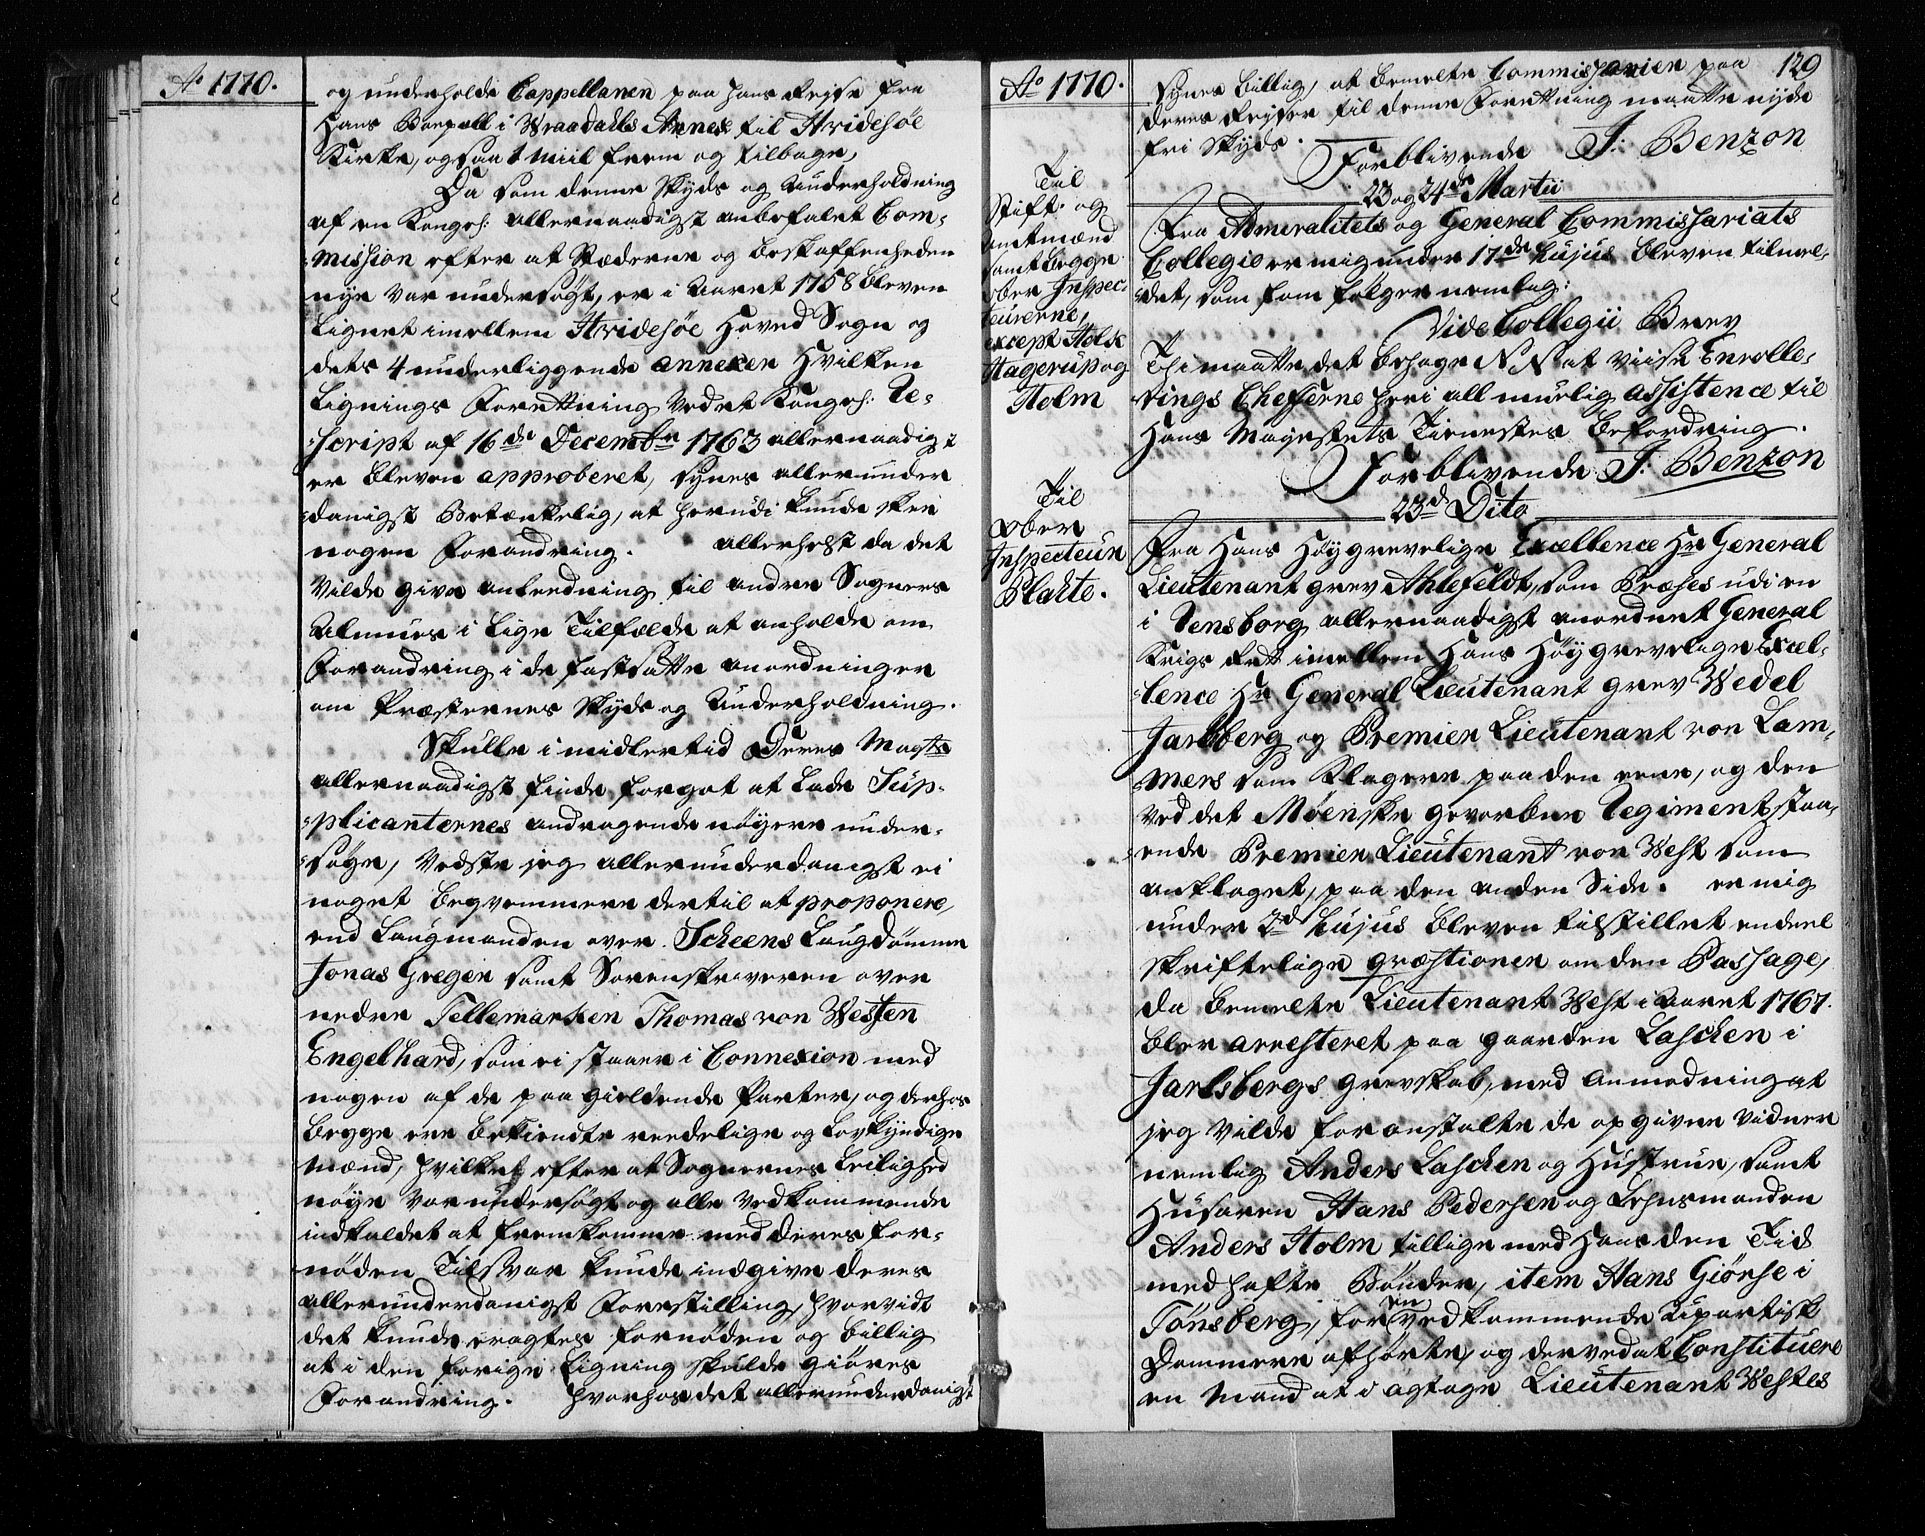 Aº 1770.
og underholde Cappellanen paa hans Reyse fra
hans Boepæll i Wraadahls Annex til Hvidesøe
Kirke, ogsaa 1 miil frem og tilbage,
Da som denne Skyds og Underholdning
af en Kongel: allernaadigst anbefalet Com-
mission efter at Stæderne og beskaffenheden
nye var undersøgt, er i Aaret 1758 bleven
Lignet imellem Hvidesøe Hoved Sogn og
dets 4 underliggende annexer hvilken
Lignings Forretning ved et Kongel: Re-
script af 16de Decembr 1763 allernaadigst
er bleven approberet, synes allerunder
danigst betænkelig, at herudi kunde skee
nogen Forandring. allerhelst da det
vilde give anledning til andre Sogners
Almues i lige Tilfælde at anholde om
Forandring i de fastsatte anordninger
om Præsternes Skyds og Underholdning.
Skulle imidlertid Deres Mayts
allernaadigst finde forgot at lade Sup-
plicanternes andragende nøyere under-
søge, vedste jeg allerunderdanigst ei
noget beqvemmere dertil at proponere,
end Laugmanden over Scheens Laugdømme
Jonas Gregers samt Sorenskriveren over
nedre Tellemarken Thomas von Westen
Engelhard, som ei staaer i Connexion med
nogen af de paa gieldende Parter, og derhos
begge ere bekiendte reedelige og Lovkyndige
mænd, hvilket efter at Sognernes Leilighed
nøye var undersøgt og alle vedkommende
indkaldet at fremkomme med deres for-
nøden Tilsvar kunde indgive deres
allerunderdanigst Forestilling, hvorvidt
det kunde eragtes fornøden og billig
at i den forige Ligning skulde giøres
Forandring. hvorhos det allerunderdanigst
Aº 1770.
129
synes billig, at bemelte Commissarier paa
deres Reyser til denne Forretning maatte nyde
fri Skyds.
Forblivende J: Benzon
23 og 24de Martii
Til
Stift- og
Amtmænd
samt begge
Ober Inspec-
teurerne,
except Holst
Hagerup og
Holm
Fra Admiralitets og General Commissariats
Collegio er mig under 17de hujus bleven tilmel-
det, som som følger nemlig:
Vide Collegii Brev
Thi maatte det behage N N at viise Enrolle-
rings Cheferne heri all muelig assistence til
Hans Mayestets Tienestes Befordring.
Forblivende J: Benzon
23d Dito
Til
Ober
Inspecteur
Plade.
Fra Hans Høygrevelige Excellence Hr General
Lieutenant grev Ahlefeldt, som Præses udi en
i Rensborg allernaadigst anordnet General
Krigs Ret imellem Hans Høygrevelige Excel-
lence Hr General Lieutenant grev Wedel
Jarlsberg og Premier Lieutenant von Lam-
mers som Klagere paa den eene, og den
ved det Møenske gevorbne Regiment staa-
ende Premier Lieutenant von West som
anklaget, paa den anden Side. er mig
under 2d hujus bleven tilstillet endeel
skriftelige qvæstioner om den Passage,
da bemelte Lieutenant West i Aaret 1767.
blev arresteret paa gaarden Laschen i
Jarlsbergs grevskab, med Anmodning at
jeg vilde foranstalte de opgivne Vidner
nemlig Anders Laschen og Hustrue, samt
Husaren Hans Pedersen og Lehnsmanden
Anders Holm tillige med hans den Tid
medhafte Bønder, item Hans Giønse i
Tønsberg, for en vedkommende Upartisk
Dommere afhørte, og derved at Constituere
en Mand at i agtage Lieutenant Westes